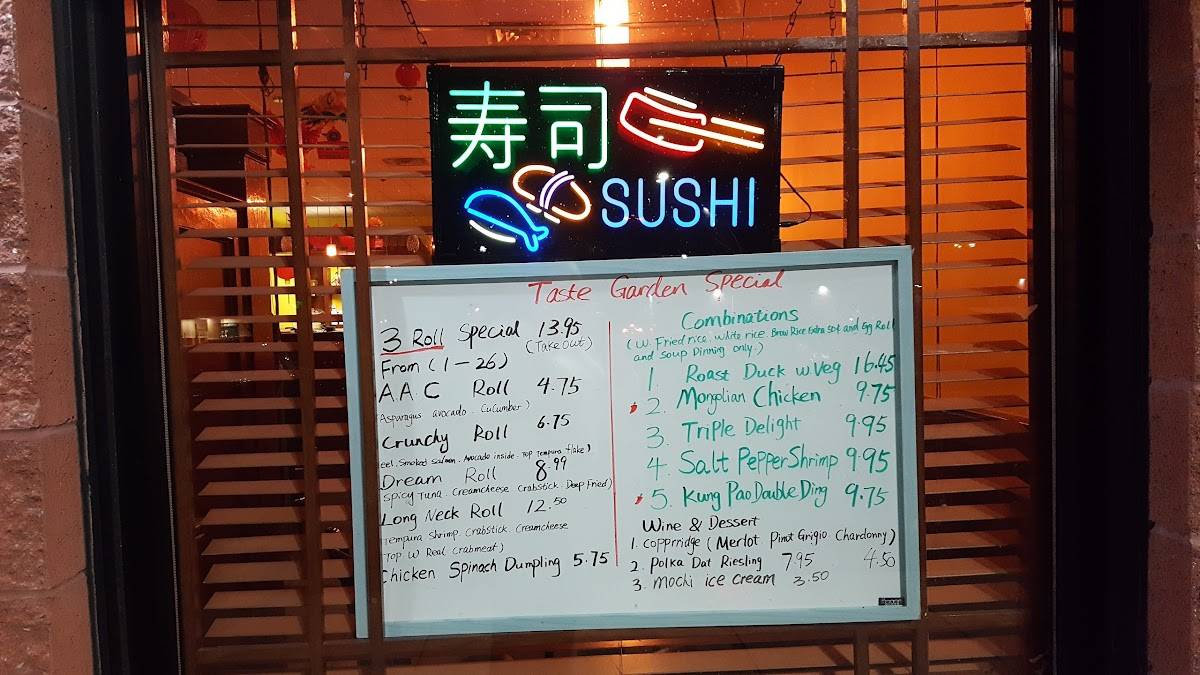 寿司
SUSHI
Taste Garden Special
3 Roll Special 13.95
(Take Out)
From (1-26)
A.A.C Roll 4.75
(Asparagus avocado. Cucumber)
Crunchy Roll 6.75
eel. Smoked Salmon. Avocado inside. Top Tempura flake)
Dream Roll 8.99
Spicy Tuna. Creamcheese. Crabstick. Deep Fried)
Long Neck Roll 12.50
Tempura Shrimp Crabstick. Creamcheese
Top W Real Crabmeat)
Chicken Spinach Dumpling 5.75
Combinations
(W. Fried rice. White rice. Brow Rice Extra 50¢ and Egg Roll
and Soup Dinning only.)
1. Roast Duck w Veg 16.45
2. Mongolian Chicken 9.75
3. Triple Delight 9.95
4. Salt Pepper Shrimp 9.95
5. Kung Pao Double Ding 9.75
Wine & Dessert
1. Copprridge (Merlot Pinot Grigio Chardonny)
4.50
2. Polka Dat Riesling 7.95
3. Mochi ice cream 3.50